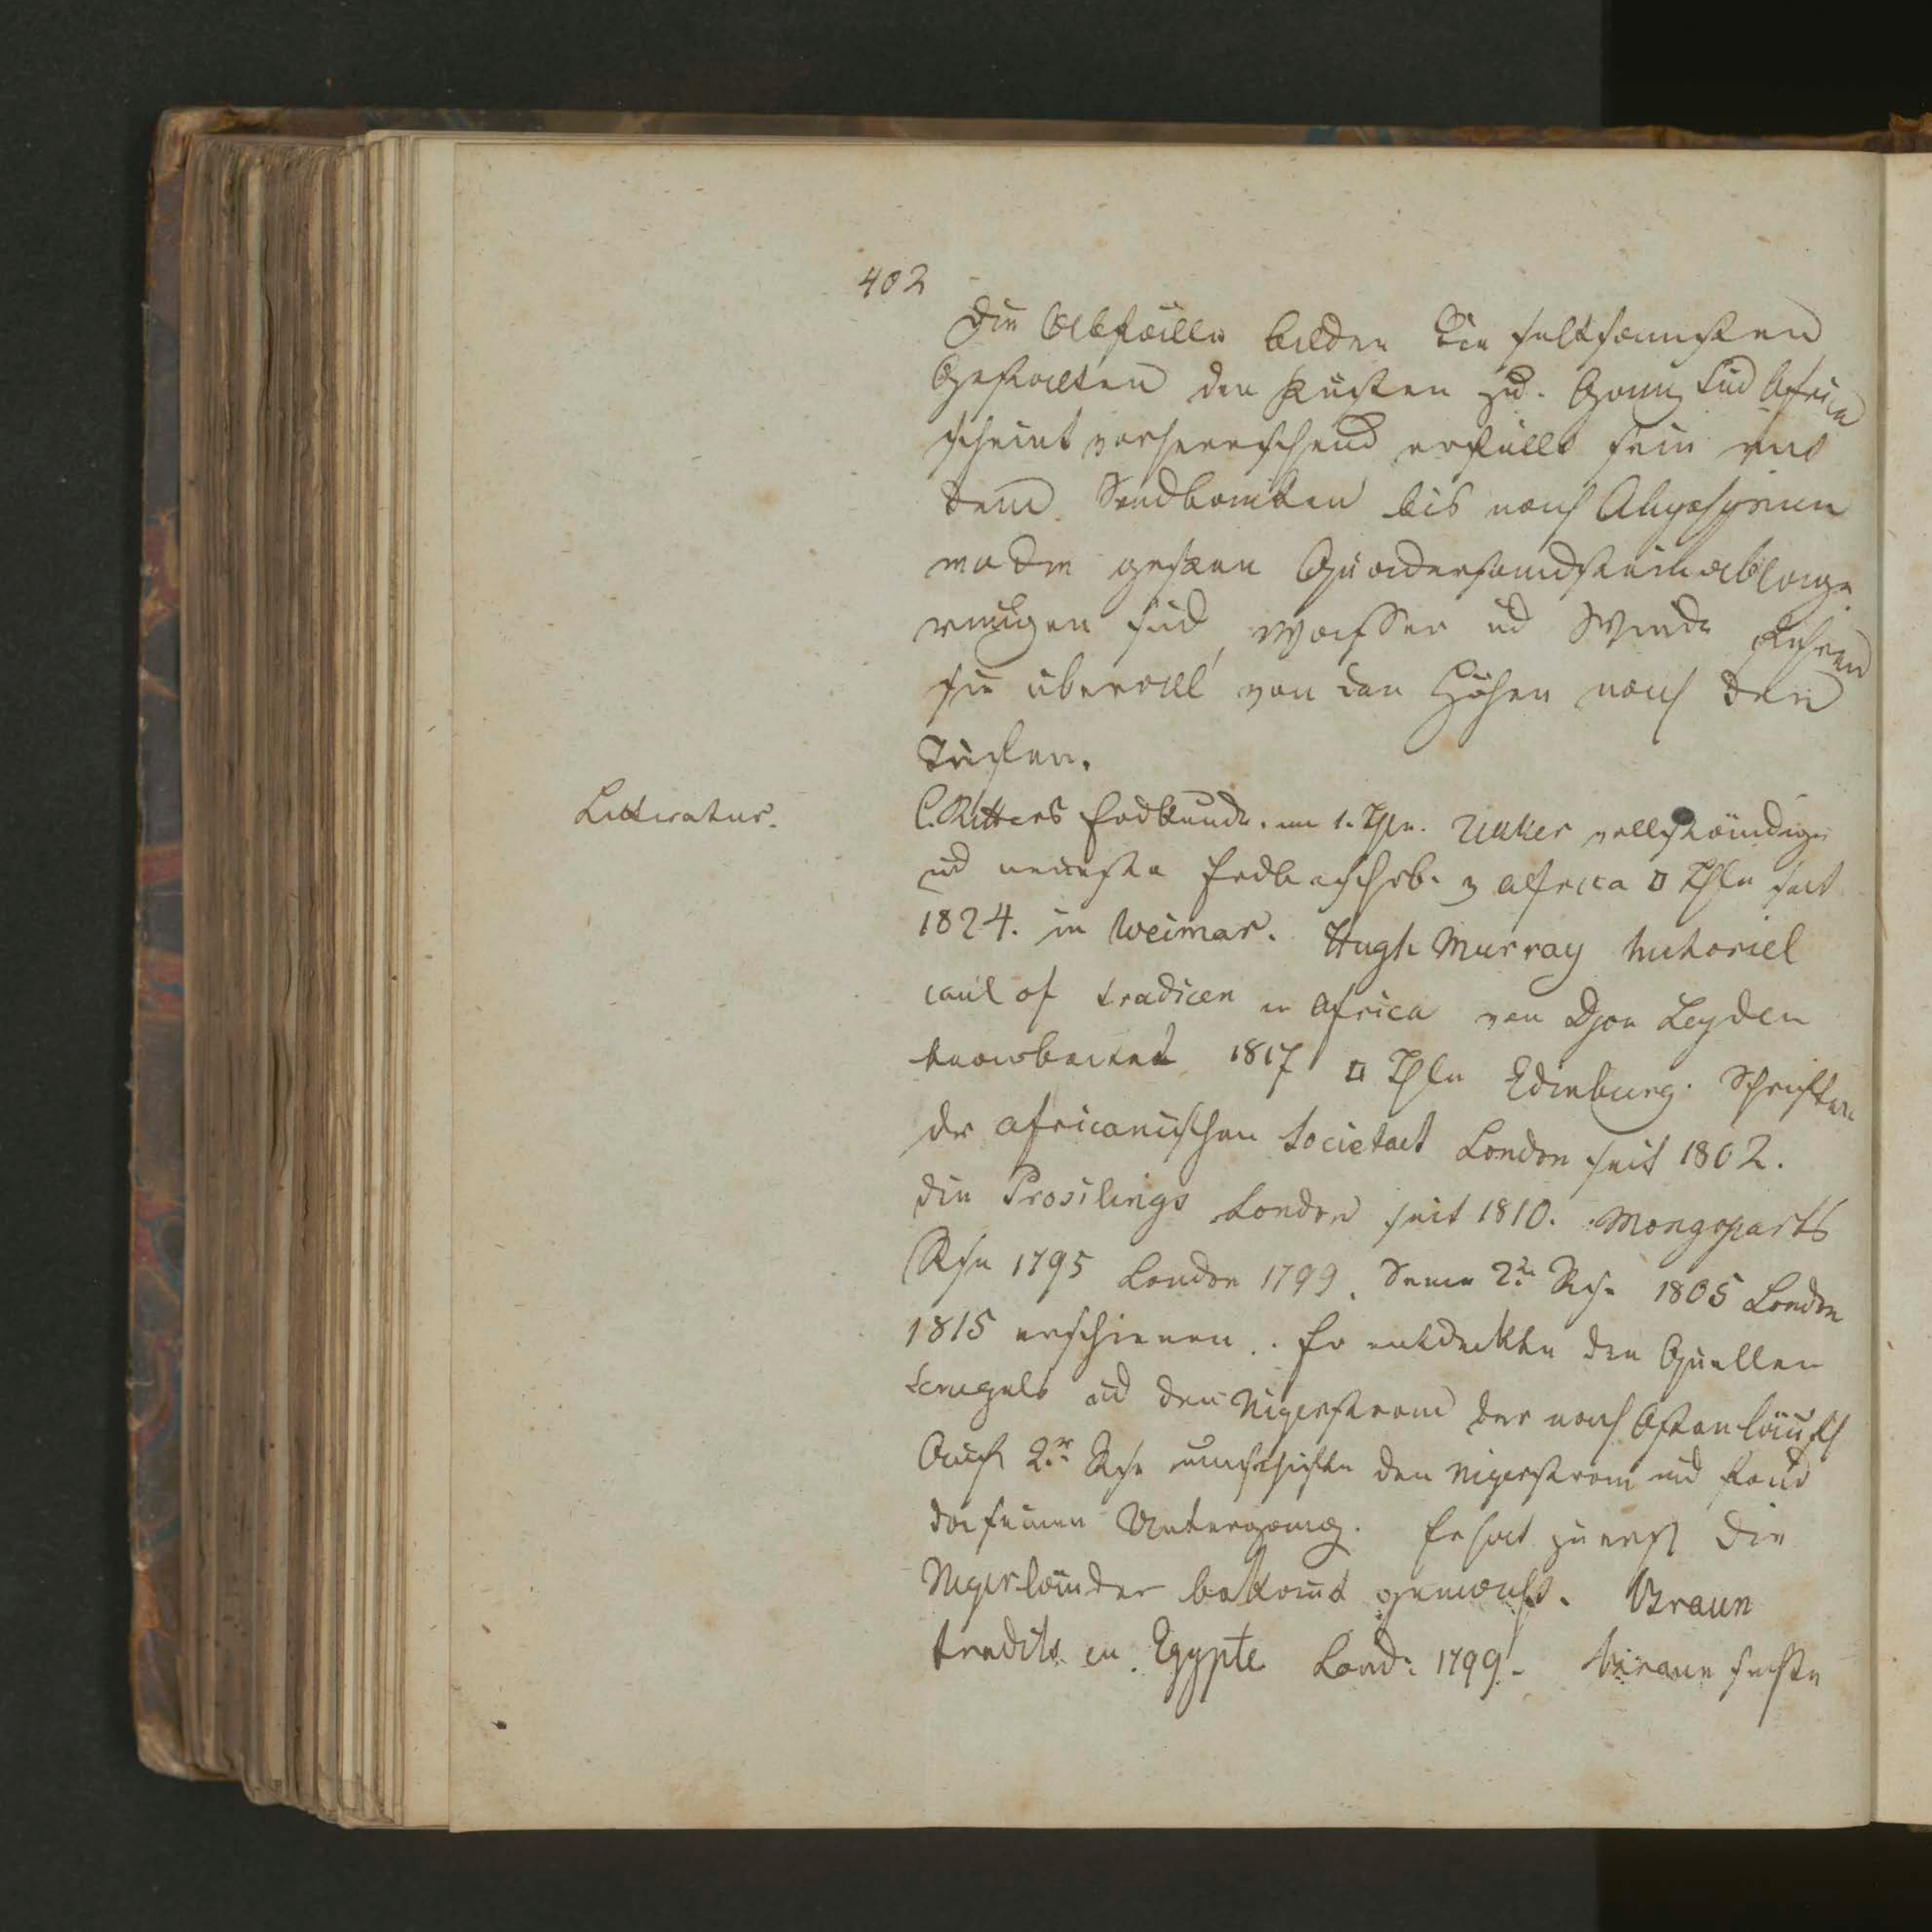 402
Die Abfälle bilden die seltsamsten
Gestalten den Küsten zu. Ganz Süd Africa
scheint vorherrschend erfüllt sein mit
dem Sandbänken bis nach Abyssynien
wo die Quadersandsteinablage
rungen sind, Wasser und Winde führen
sie überall von den Höhen nach den
Tiefen.
Litteratur.
C. Ritters Erdkunde. im 1. Thle. Ukkert vollständige
und neueste Erdbeschrb. v Africa 2 Thle seit
1824. in Weimar. Hugh Murray historiel
of in Africa von Djon Leyden
bearbeitet 1817 2 Thle Edinburg. Schriften
der africanischen Societaet London seit 1802.
die Prosilings London seit 1810. Mongoparts
Rse 1795 London 1799. Seine 2te Rse 1805 London
1815 erschienen. Er entdeckte den Quellen
Senegals und den Nigerstrom der nach Osten läuft
Auf 2r Rse den Nigerstrom und fand
da seinen Untergang. Er hat zuerst die
Nigerländer bekannt gemacht. Braun
in Egypte Lond: 1799. Braun suchte